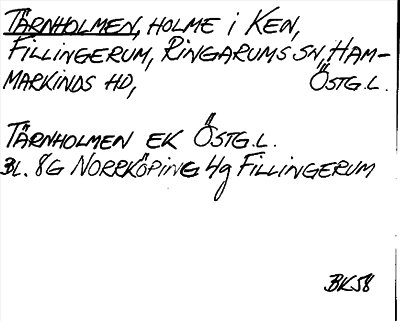 TÄRNHOLMEN, HOLME i KEN,
FILLINGERUM, RINGARUMS SN, HAM-
MARKINDS HD, ÖSTG.L.
TÄRNHOLMEN EK ÖSTG.L.
BL. 8G NORRKÖPING 4g FILLINGERUM
BK58